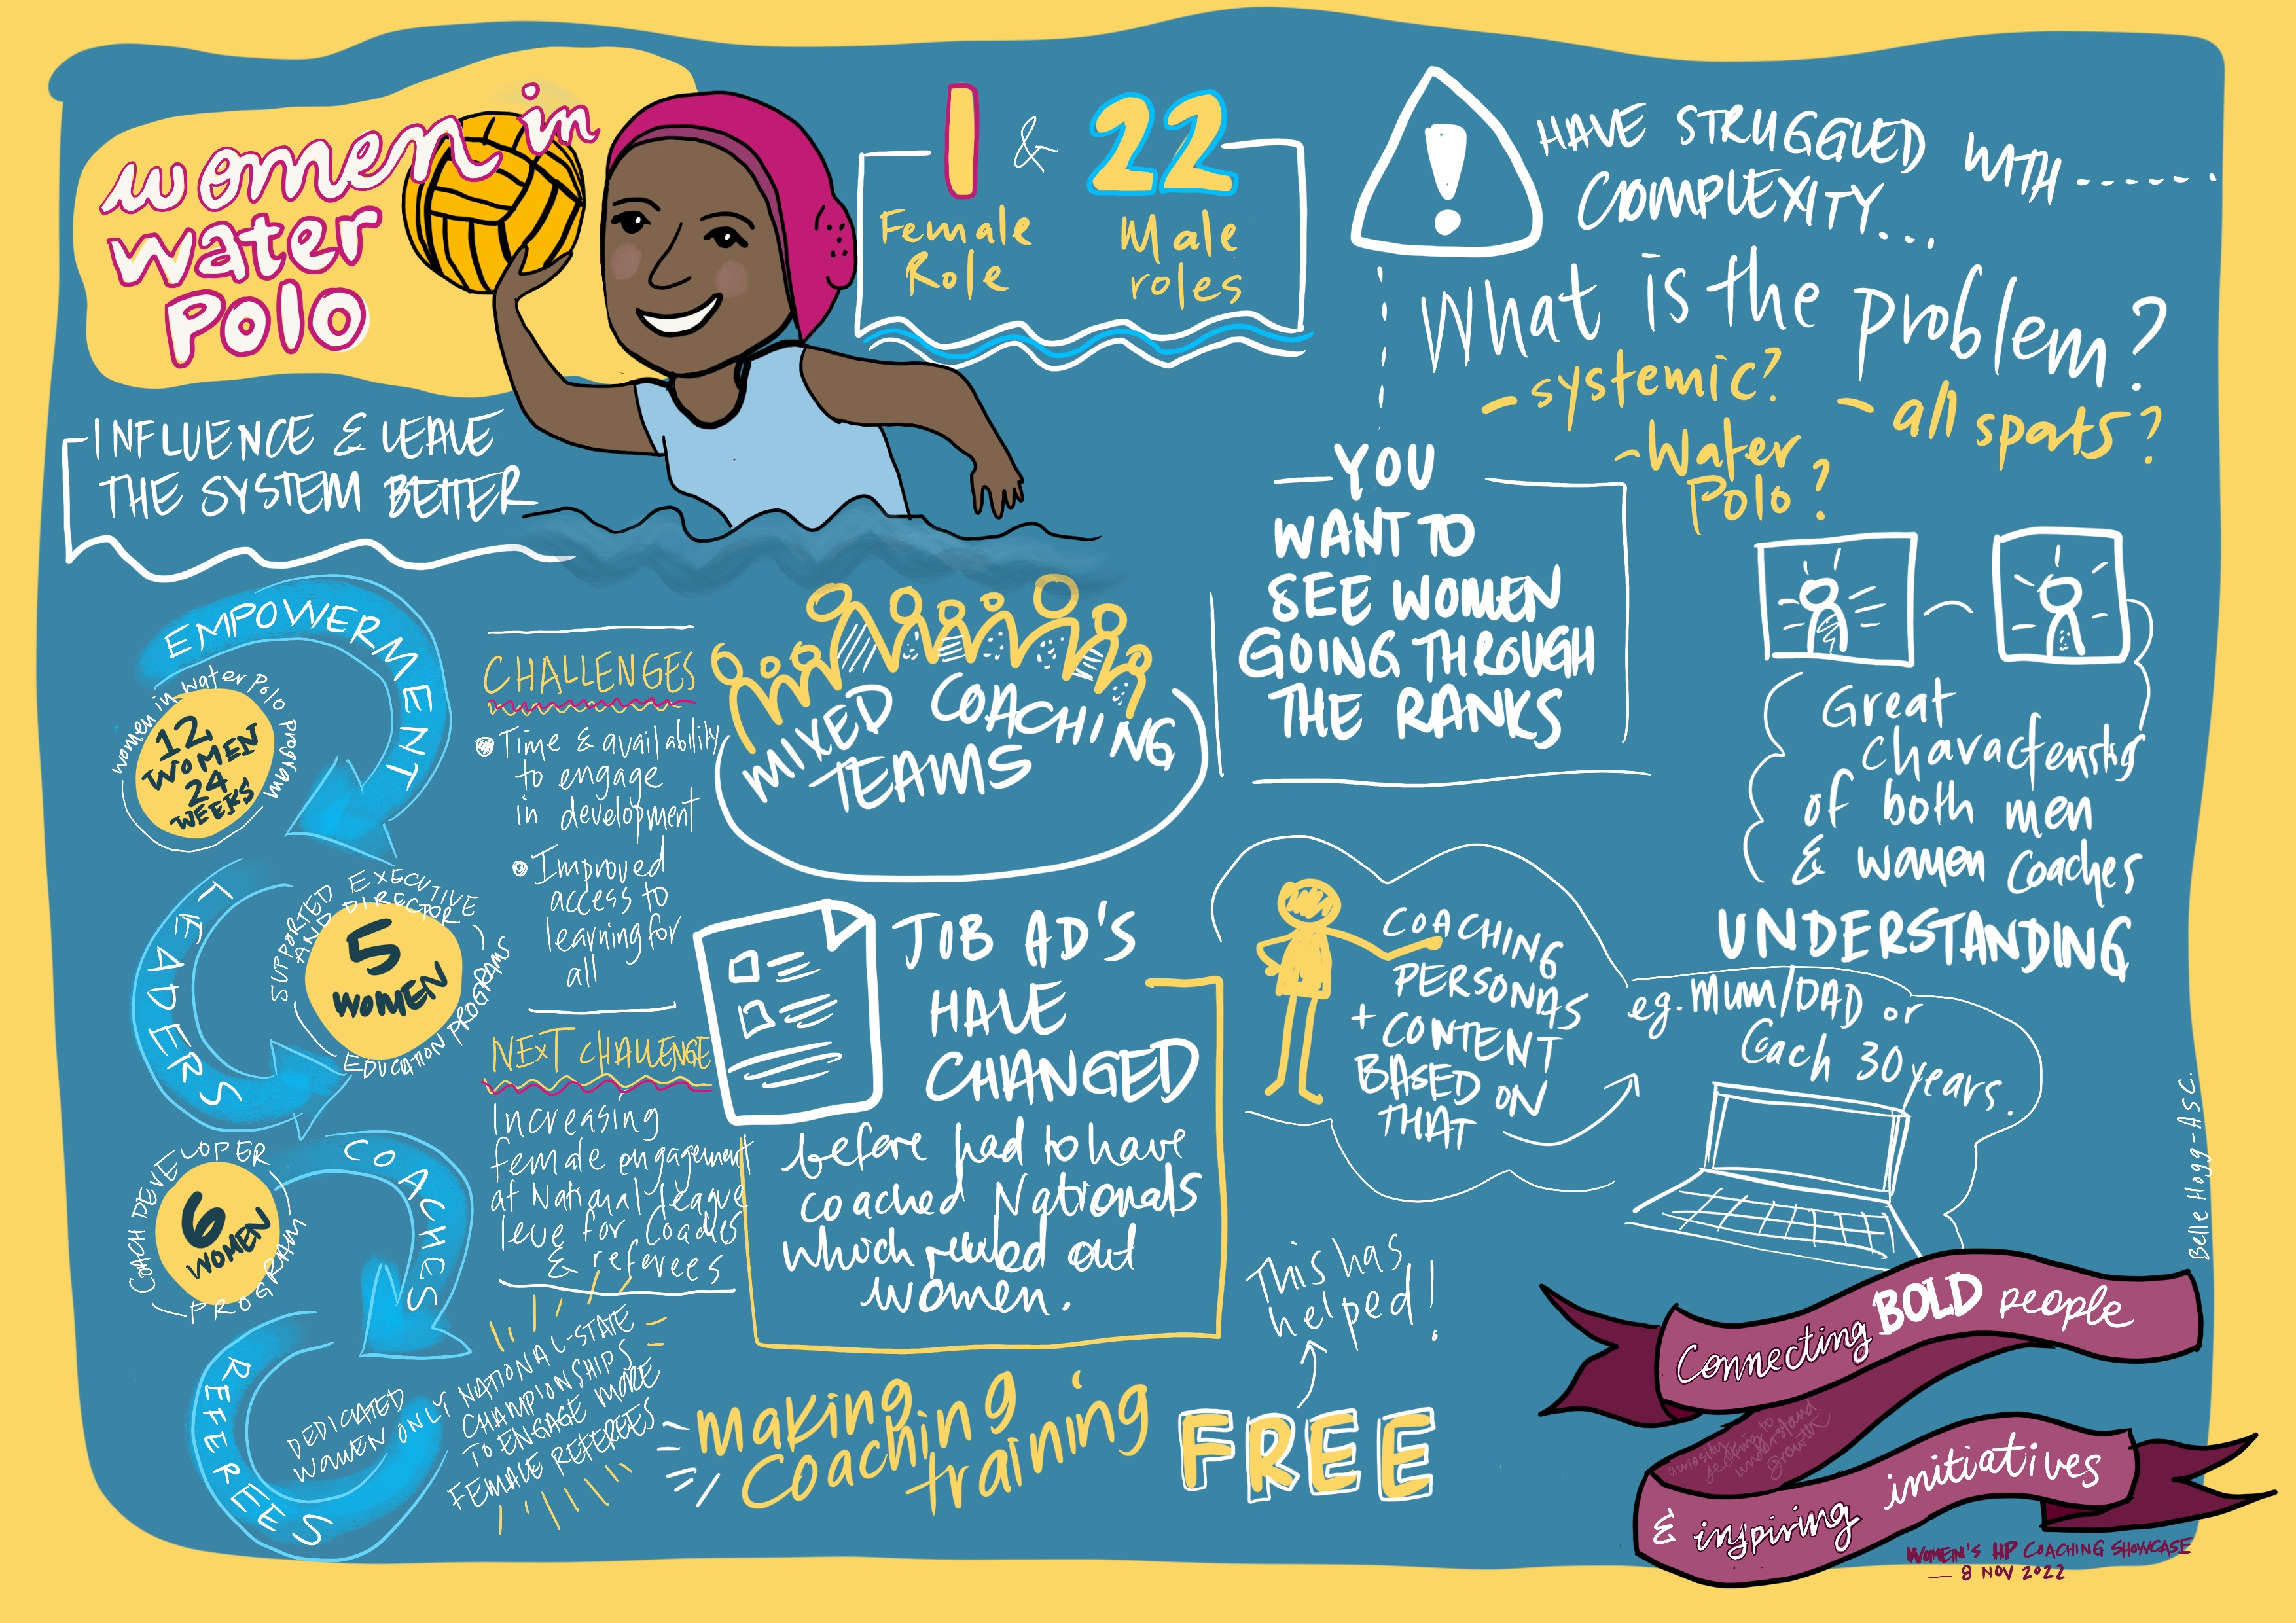 women in
water
Polo
INFLUENCE & LEAVE
THE SYSTEM BETTER
1 & 22
Female Role
Male roles
HAVE STRUGGLED WITH ......
COMPLEXITY...
What is the problem?
- systemic?
- all sports?
- Water
Polo ?
YOU
WANT TO
SEE WOMEN
GOING THROUGH
THE RANKS
EMPOWERMENT
women in water Polo program
12
WOMEN
24
WEEKS
LEADERS
SUPPORTED EXECUTIVE
AND DIRECTOR
EDUCATION PROGRAMS
5
WOMEN
COACHES
COACH DEVELOPER
PROGRAM
6
WOMEN
REFEREES
DEDICATED
WOMEN ONLY NATIONAL-STATE
CHAMPIONSHIPS
TO ENGAGE MORE
FEMALE REFEREES
CHALLENGES
Time & availability
to engage
in development
Improved
access to
learning for
all
NEXT CHALLENGE
Increasing
female engagement
at National league
leve for Coaches
& referees
MIXED COACHING
TEAMS
JOB AD'S
HAVE
CHANGED
before had to have
coached Nationals
which ruled out
women.
Making
Coaching
training
FREE
This has
helped!
COACHING
PERSONAS
+ CONTENT
BASED ON
THAT
Great
characteristics
of both men
& women coaches
UNDERSTANDING
eg. MUM/DAD or
Coach 30 years.
Belle Hogg-ASC.
Connecting BOLD people
to
understand
Growth
& inspiring initiatives
WOMEN'S HP COACHING SHOWCASE
— 8 NOV 2022